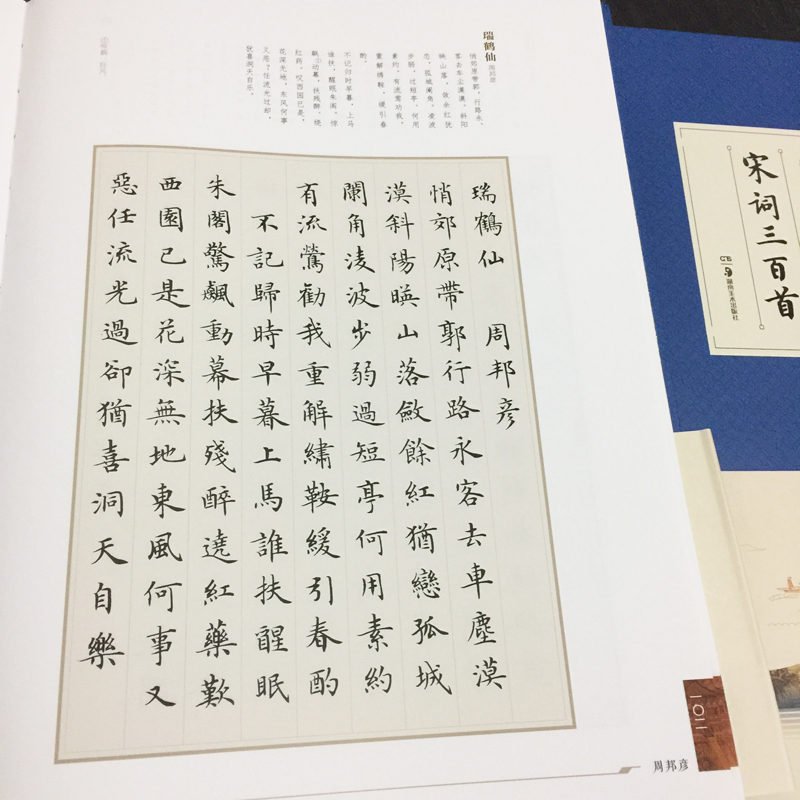 瑞鹤仙 周邦彦
悄郊原带郭，行路永，
客去车尘漠漠。斜阳
映山落，敛余红犹
恋，孤城阑角。凌波
步弱，过短亭，何用
素约。有流莺劝我，
重解绣鞍，缓引春
酌。
不记归时早暮，上马
谁扶，醒眠朱阁。惊
飙①动幕，扶残醉，绕
红药。叹西园已是，
花深无地，东风何事
又恶？任流光过却，
犹喜洞天自乐。
瑞鶴仙 周邦彥
悄郊原帶郭行路永客去車塵漠
漠斜陽暎山落斂餘紅猶戀孤城
闌角淩波步弱過短亭何用素約
有流鶯勸我重解繡鞍緩引春酌
不記歸時早暮上馬誰扶醒眠
朱閣驚飆動幕扶殘醉遶紅藥歎
西園已是花深無地東風何事又
惡任流光過卻猶喜洞天自樂
一〇二
周邦彦
宋词三百首
湖南美术出版社